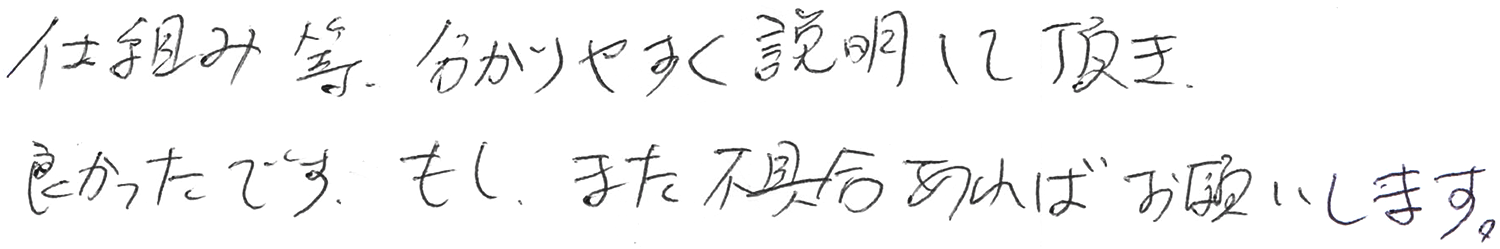 仕組み等、分かりやすく説明して頂き、
良かったです。もし、また不具合あればお願いします。